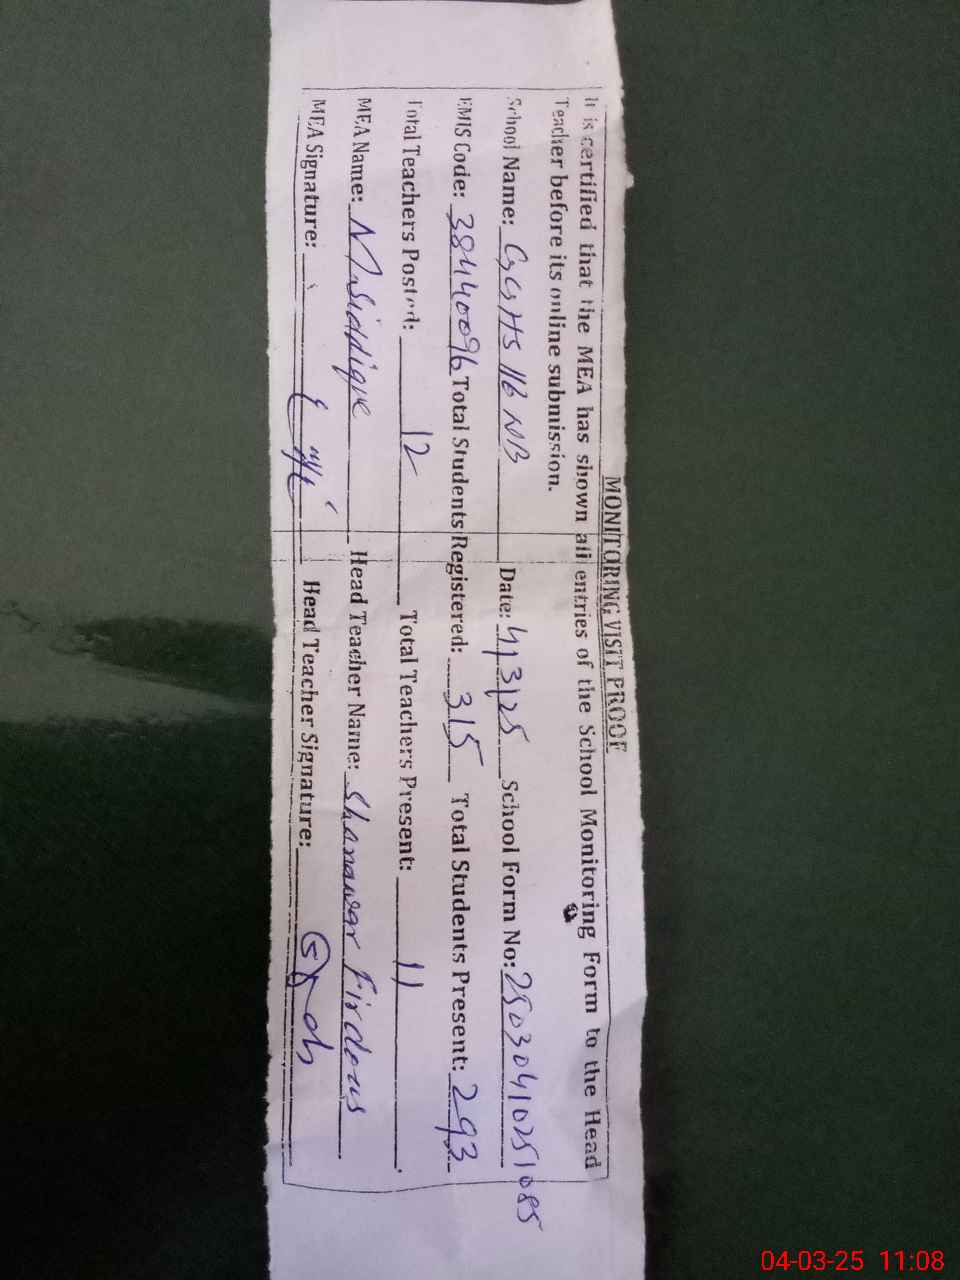 MONITORING VISIT PROOF
It is certified that the MEA has shown all entries of the School Monitoring Form to the Head
Teacher before its online submission.
School Name: GGHS 116 NB Date: 4/3/25 School Form No: 2503041025 1085
EMIS Code: 38440096 Total Students Registered: 315 Total Students Present: 293
Total Teachers Posted: 12 Total Teachers Present: 11
MEA Name: M Siddique Head Teacher Name: Shanawar Firdous
MEA Signature: Head Teacher Signature:
04-03-25 11:08